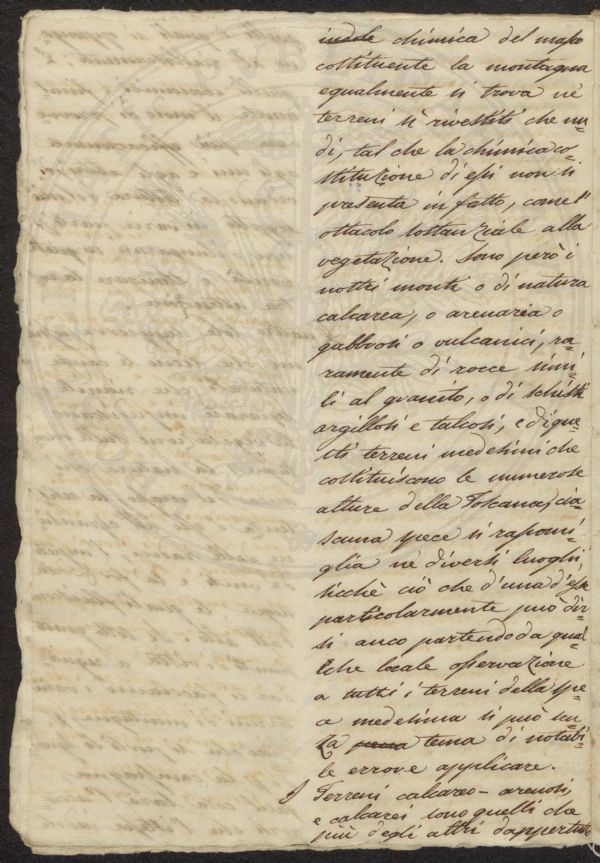 indole chimica del masso
costituente la montagna
egualmente si trova ne'
terreni sì rivestiti che nu=
di, tal che la chimica co=
stituzione di essi non si
presenta in fatto, come
ostacolo sostanziale alla
vegetazione. Sono però i
nostri monti o di natura
calcarea, o arenaria o
gabbrosi o vulcanici, ra=
ramente di rocce simi=
li al granito, o di schisti
argillosi e talcosi, e di que=
sti terreni medesimi che
costituiscono le numerose
alture della Toscana, cia=
scuna spece si rasomi=
glia ne' diversi luoghi,
sicchè ciò che d'una d'esse
particolarmente può dir
si anco partendo da qual
che locale osservazione
a tutti i terreni della spe=
ce medesima si può sen=
za tema di notabi=
le errore applicare.
Terreni calcareo-arenosi,
e calcarei sono quelli che
più degli altri dappertutto